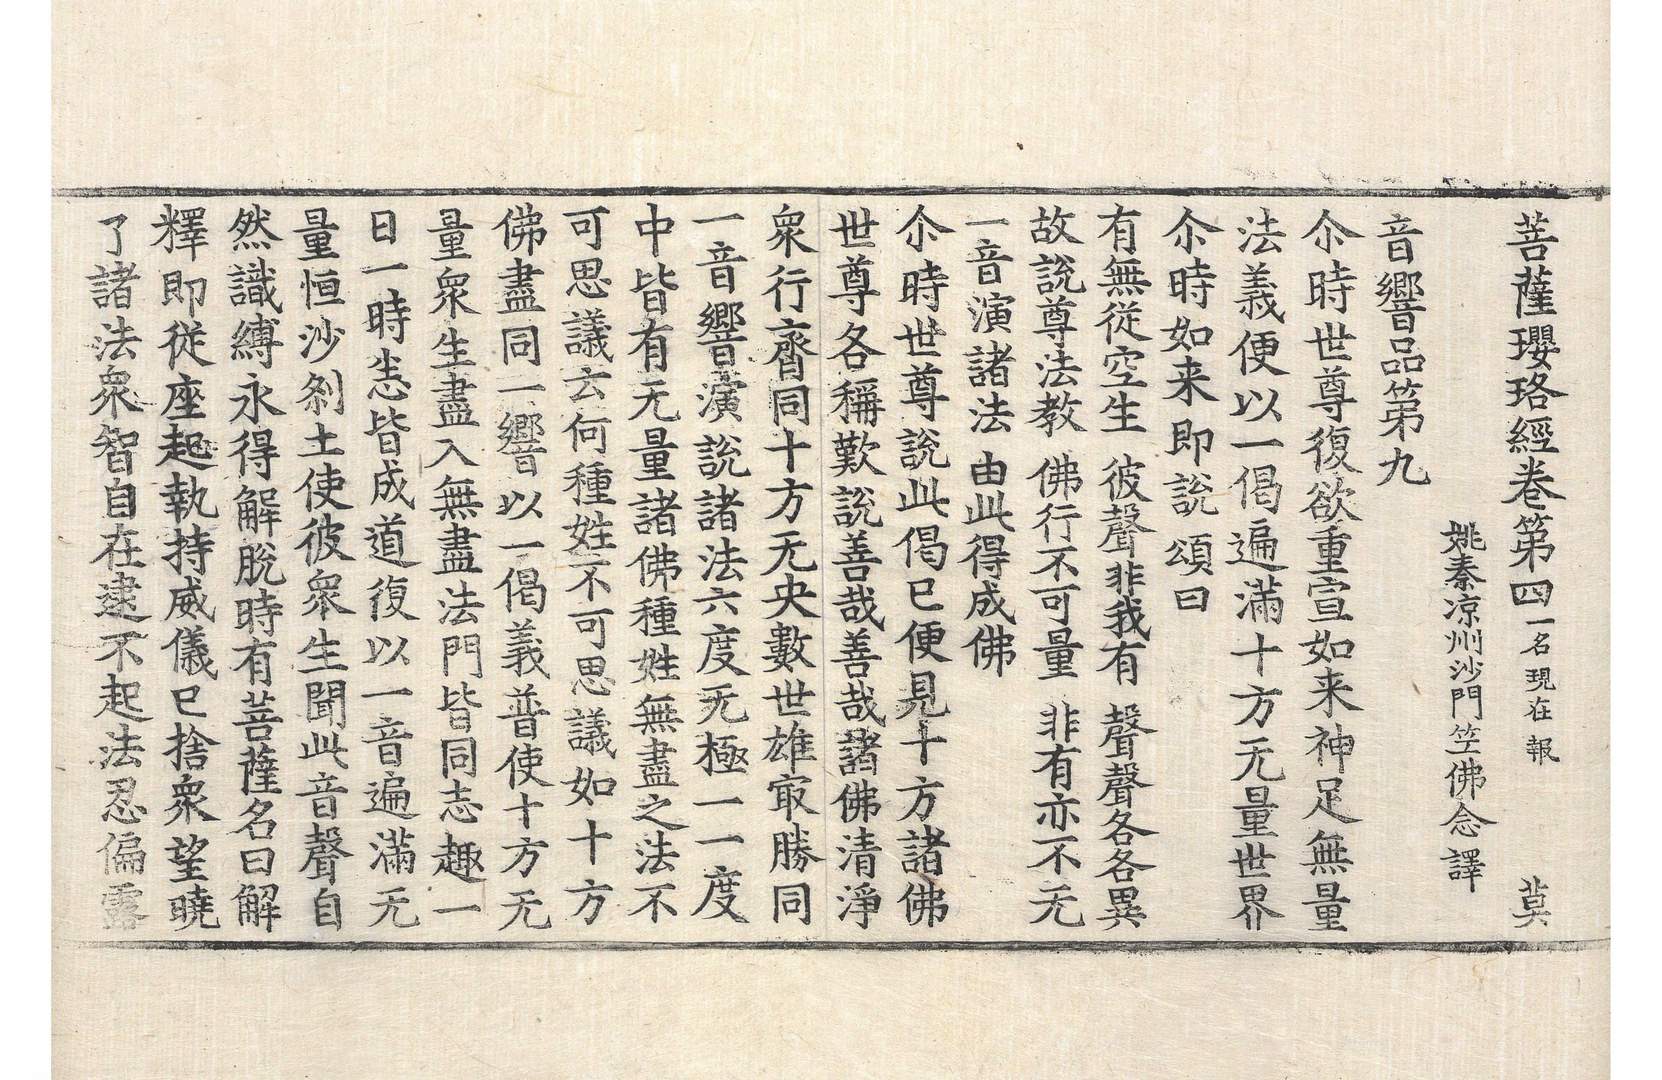 菩薩瓔珞經卷第四 一名現在報 莫
姚秦涼州沙門竺佛念譯
音響品第九
尒時世尊復欲重宣如来神足無量
法義便以一偈遍滿十方无量世界
尒時如来即說頌曰
有無從空生 彼聲非我有 聲聲各各異
故說尊法教 佛行不可量 非有亦不无
一音演諸法 由此得成佛
尒時世尊說此偈已便見十方諸佛
世尊各各稱歎說善哉善哉諸佛清淨
衆行齊同十方无央數世雄㝡勝同
一音響演說諸法六度无極一一度
中皆有无量諸佛種姓無盡之法不
可思議云何種姓不可思議如十方
佛盡同一響以一偈義普使十方无
量衆生盡入無盡法門皆同志趣一
日一時悉皆成道復以一音遍滿无
量恒沙刹土使彼衆生聞此音聲自
然識縛永得解脫時有菩薩名曰解
釋即從座起執持威儀已捨衆望曉
了諸法衆智自在逮不起法忍偏露